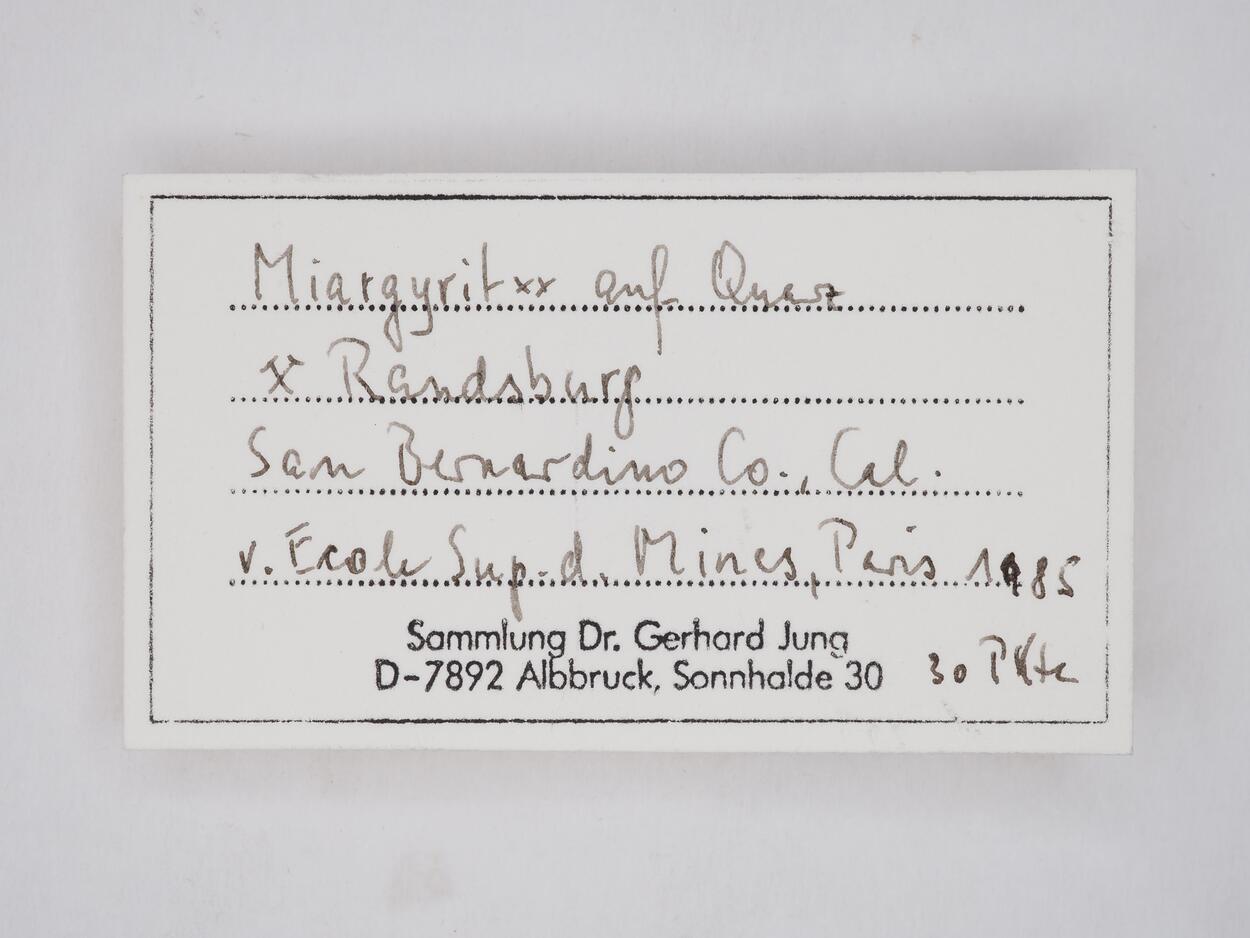 Miargyrit xx auf Quarz
⚒ Randsburg
San Bernardino Co., Cal.
v. Ecole Sup. d. Mines, Paris 1985
Sammlung Dr. Gerhard Jung
D-7892 Albbruck, Sonnhalde 30
30 Pkte